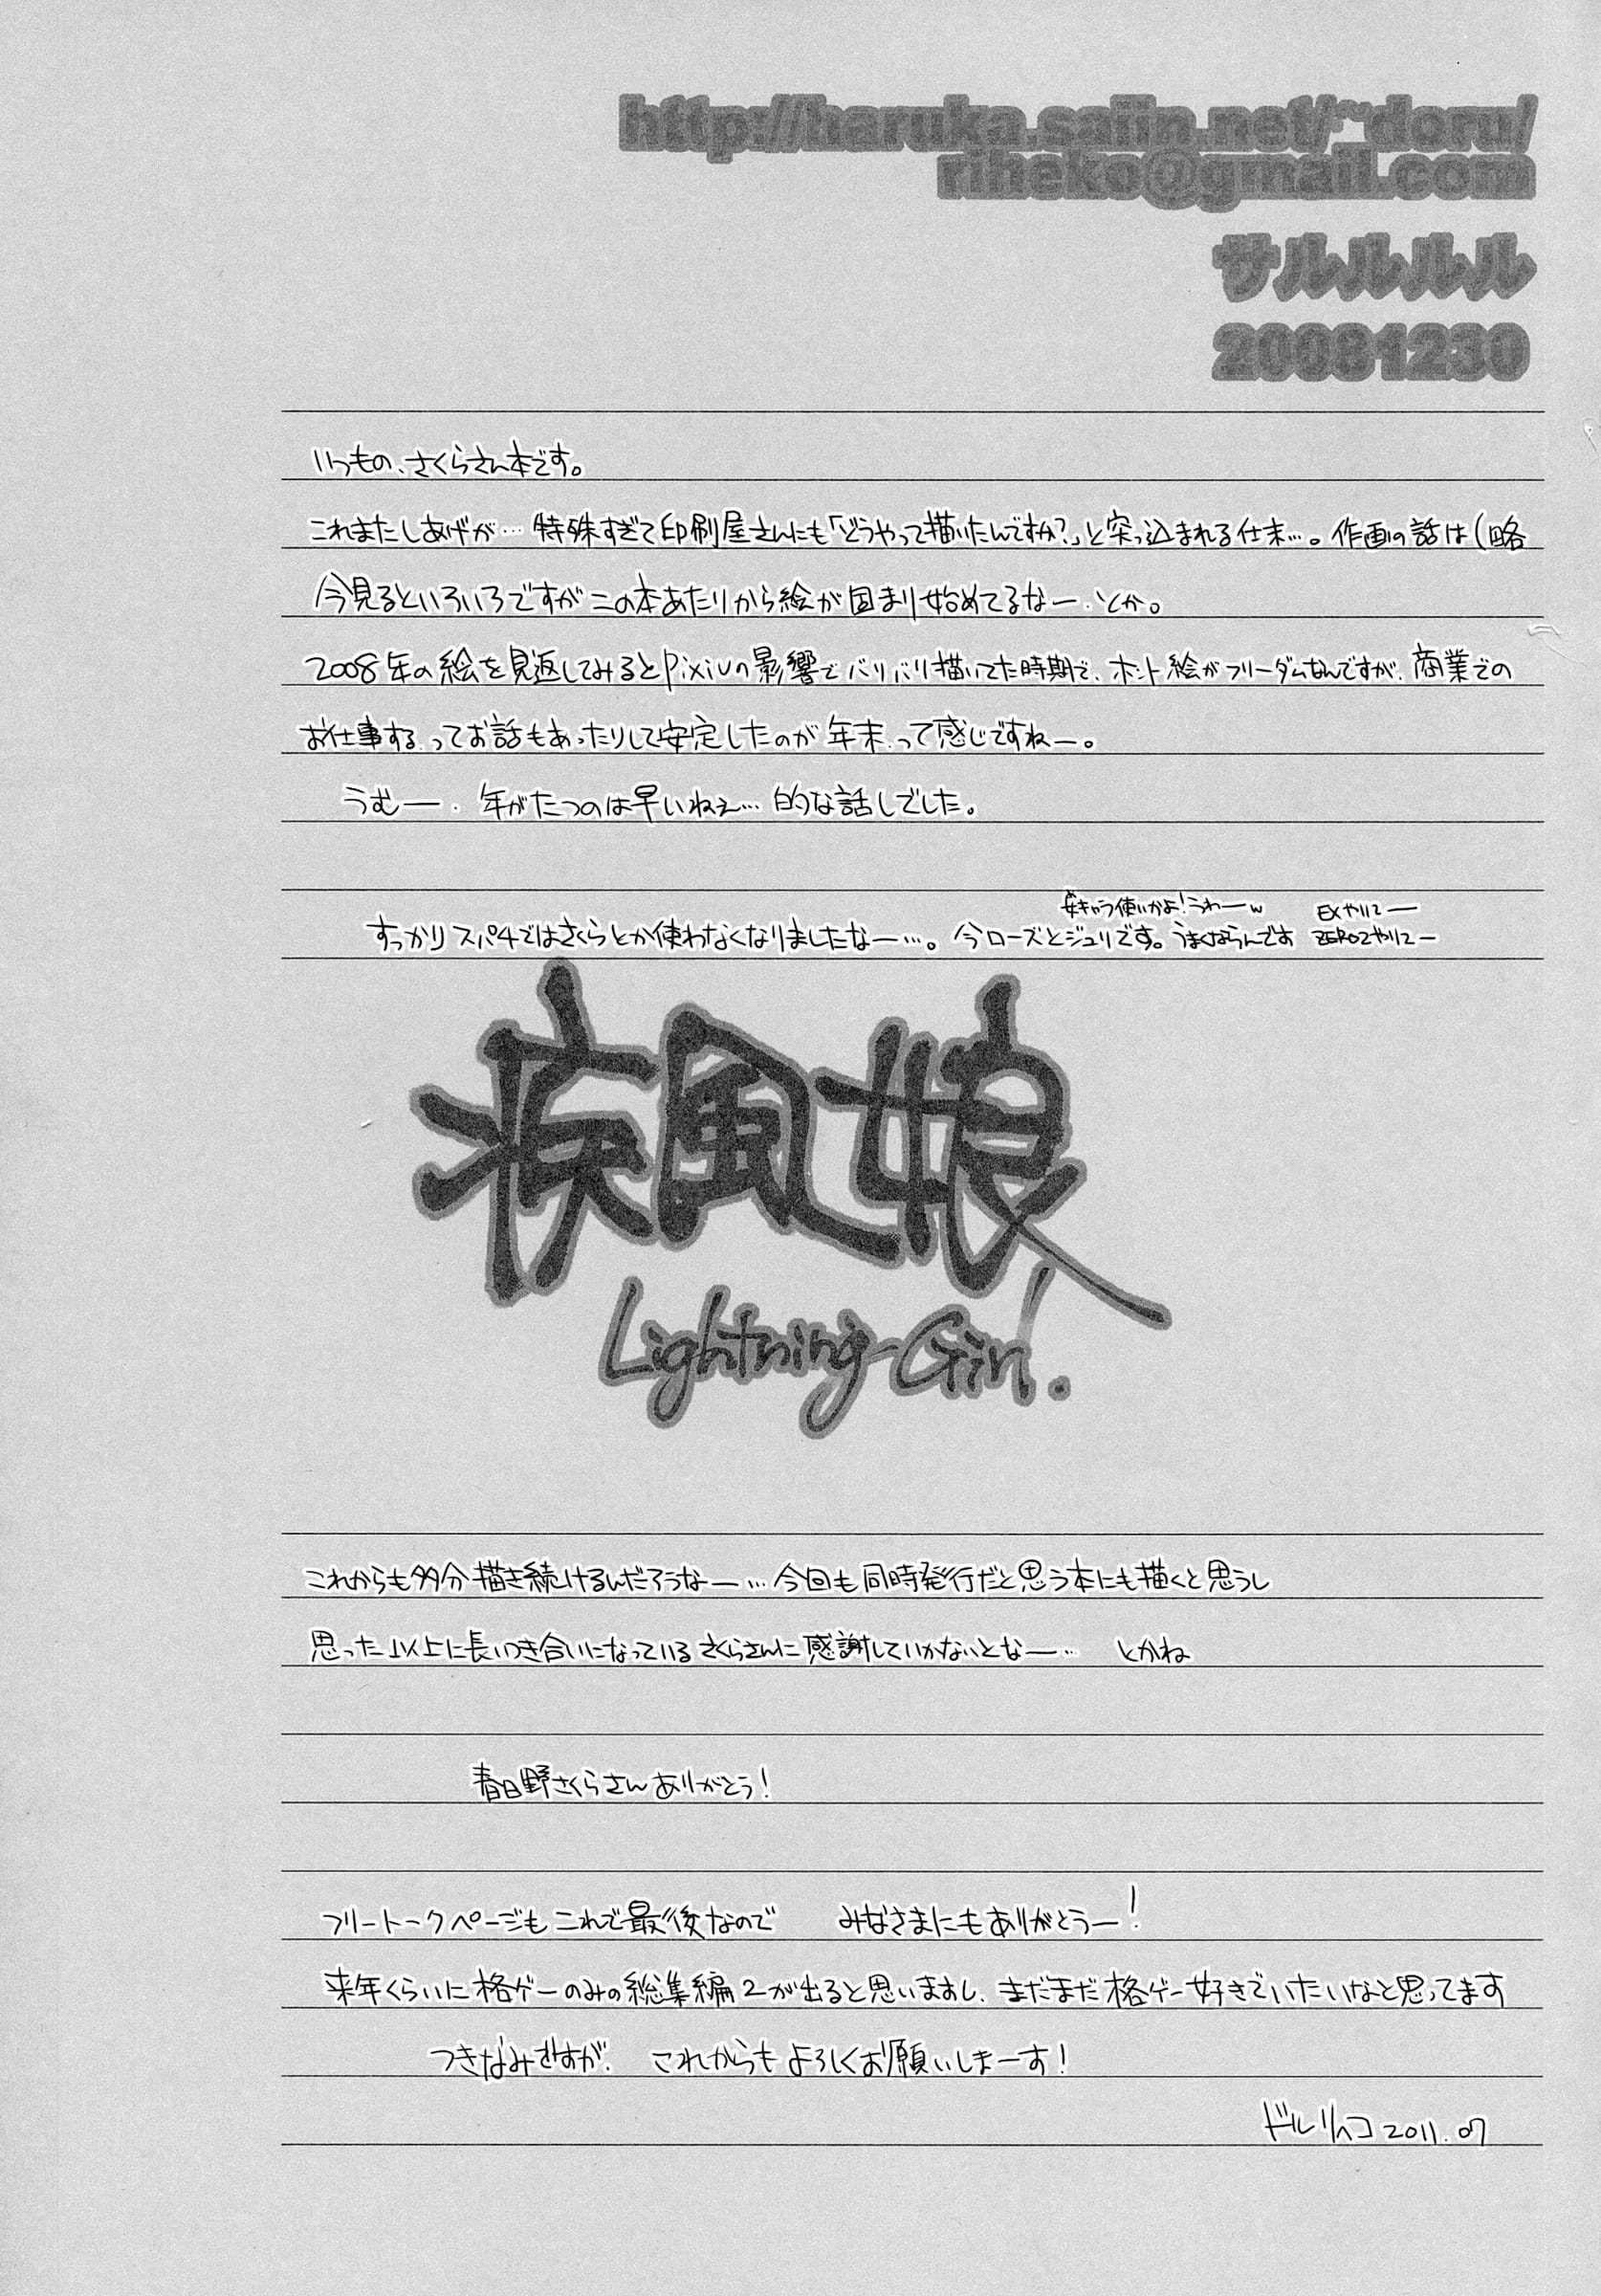 http://haruka.saiin.net/~doru/
riheko@gmail.com
サルルルル
20081230
いつもの、さくらさん本です。
これまたしあげが…特殊すぎて印刷屋さんにも「どうやって描いたんですか?」と突っ込まれる仕末…。作画の話は(略
今見るといろいろですがこの本あたりから絵が固まり始めてるなー、とか。
2008年の絵を見返してみるとpixivの影響でバリバリ描いてた時期で、ホント絵がフリーダムなんですが、商業での
お仕事する、ってお話もあったりして安定したのが年末、って感じですねー。
うむー、年がたつのは早いねえ…的な話しでした。
女キャラ使いかよ!うわーw
EXやりてー
すっかりスパ4ではさくらとか使わなくなりましたなー…。今ローズとジュリです。うまくならんです
ZERO2やりてー
疾風娘
Lightning-Girl!
これからも多分描き続けるんだろうなー…今回も同時発行だと思う本にも描くと思うし
思った以上に長いつき合いになっているさくらさんに感謝していかないとなー… とかね
春日野さくらさんありがとう!
フリートークページもこれで最後なので みなさまにもありがとうー!
来年くらいに格ゲーのみの総集編2が出ると思いますし、まだまだ格ゲー好きでいたいなと思ってます
つきなみですが、 これからもよろしくお願いしまーす!
ドルリヘコ 2011.07